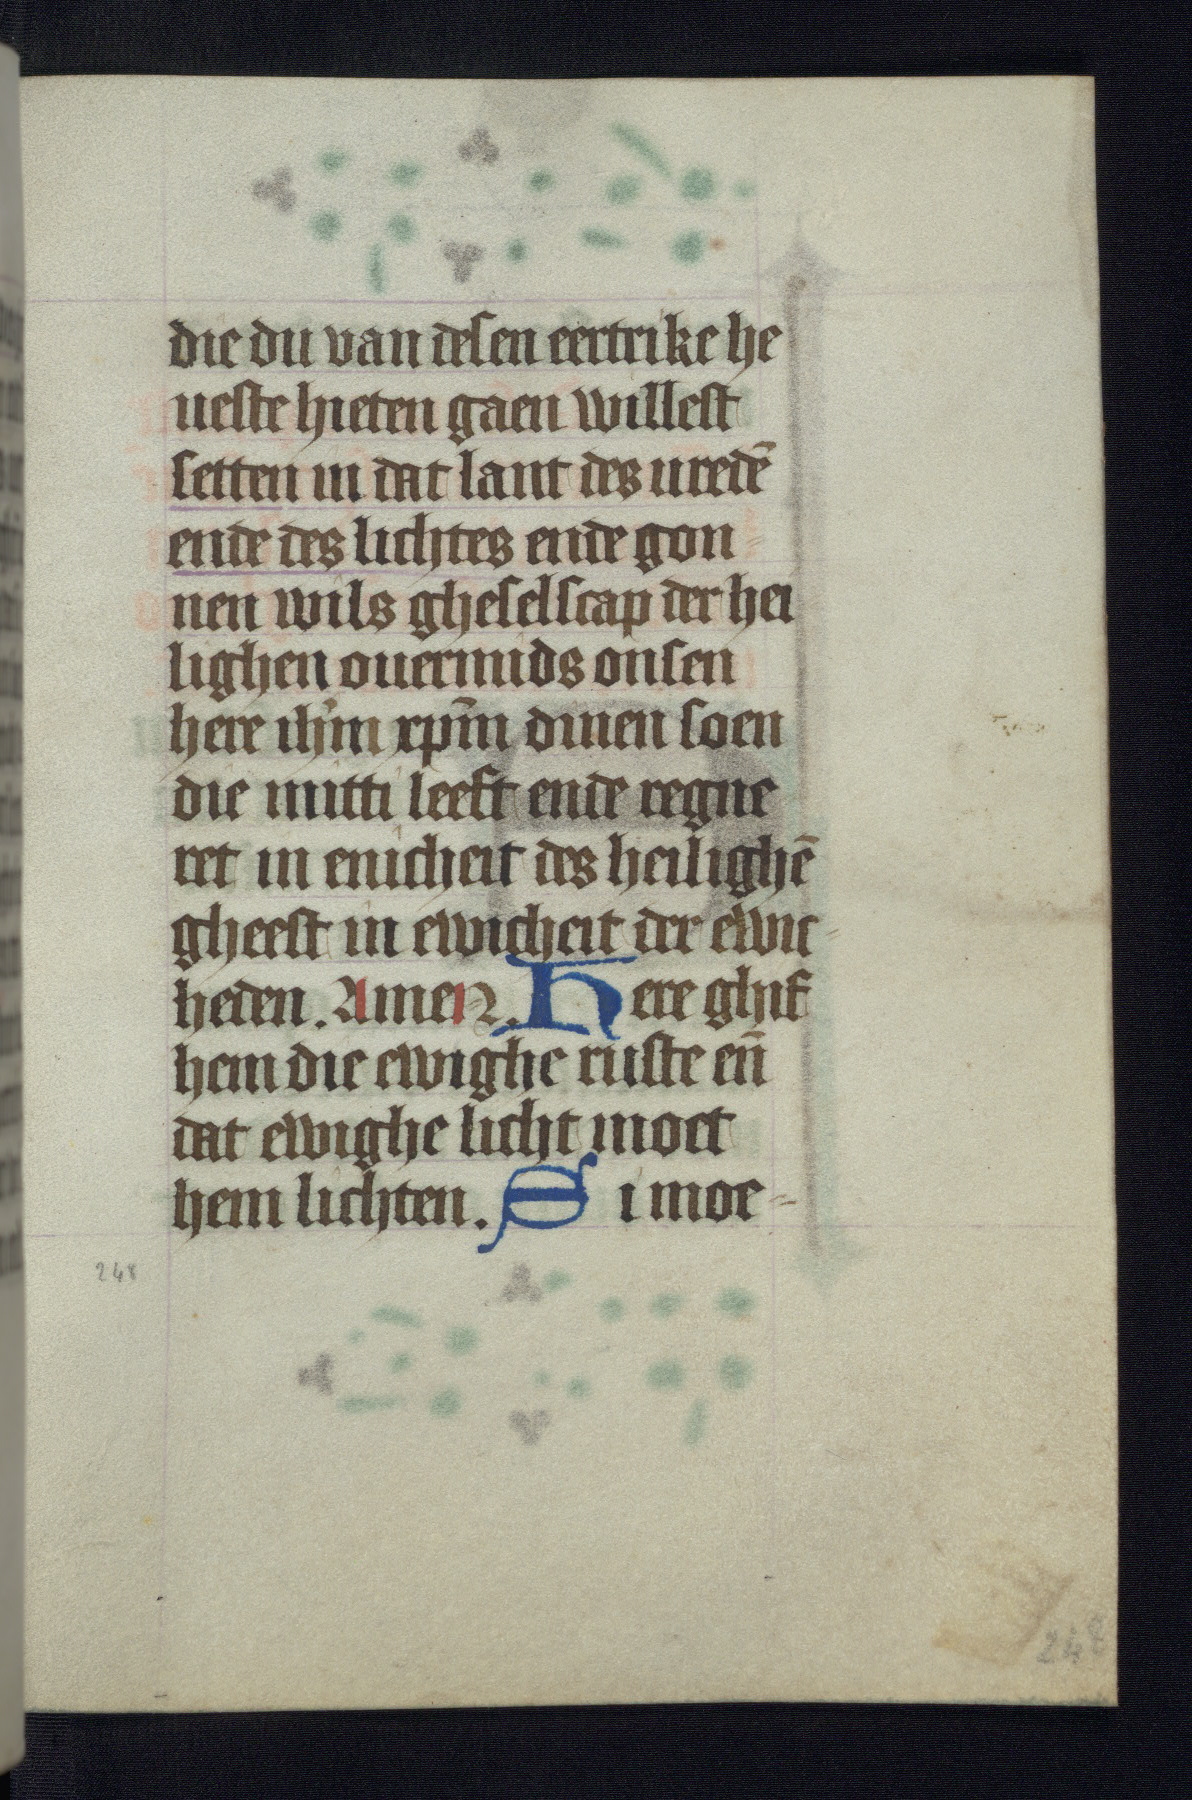 die du van desen eertrike he
ueste hieten gaen willest
setten in dat lant des uredē
ende des lichtes ende gon
nen wils gheselscap der hei
lighen ouermids onsen
here ihm̄ xpm̄ dinen soen
die mitti leeft ende regne
ret in enicheit des heilighē
gheest in ewicheit der ewic
heden. Amen. Here ghif
hem die ewighe ruste en̄
dat ewighe licht moet
hem lichten. Si moe-
248
248